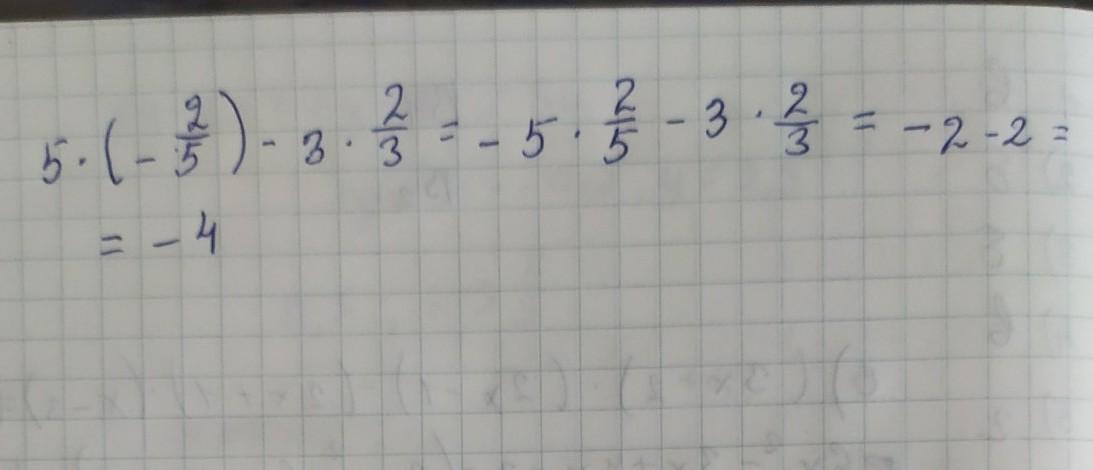 5 · (- 2/5) - 3 · 2/3 = - 5 · 2/5 - 3 · 2/3 = - 2 - 2 =
= - 4